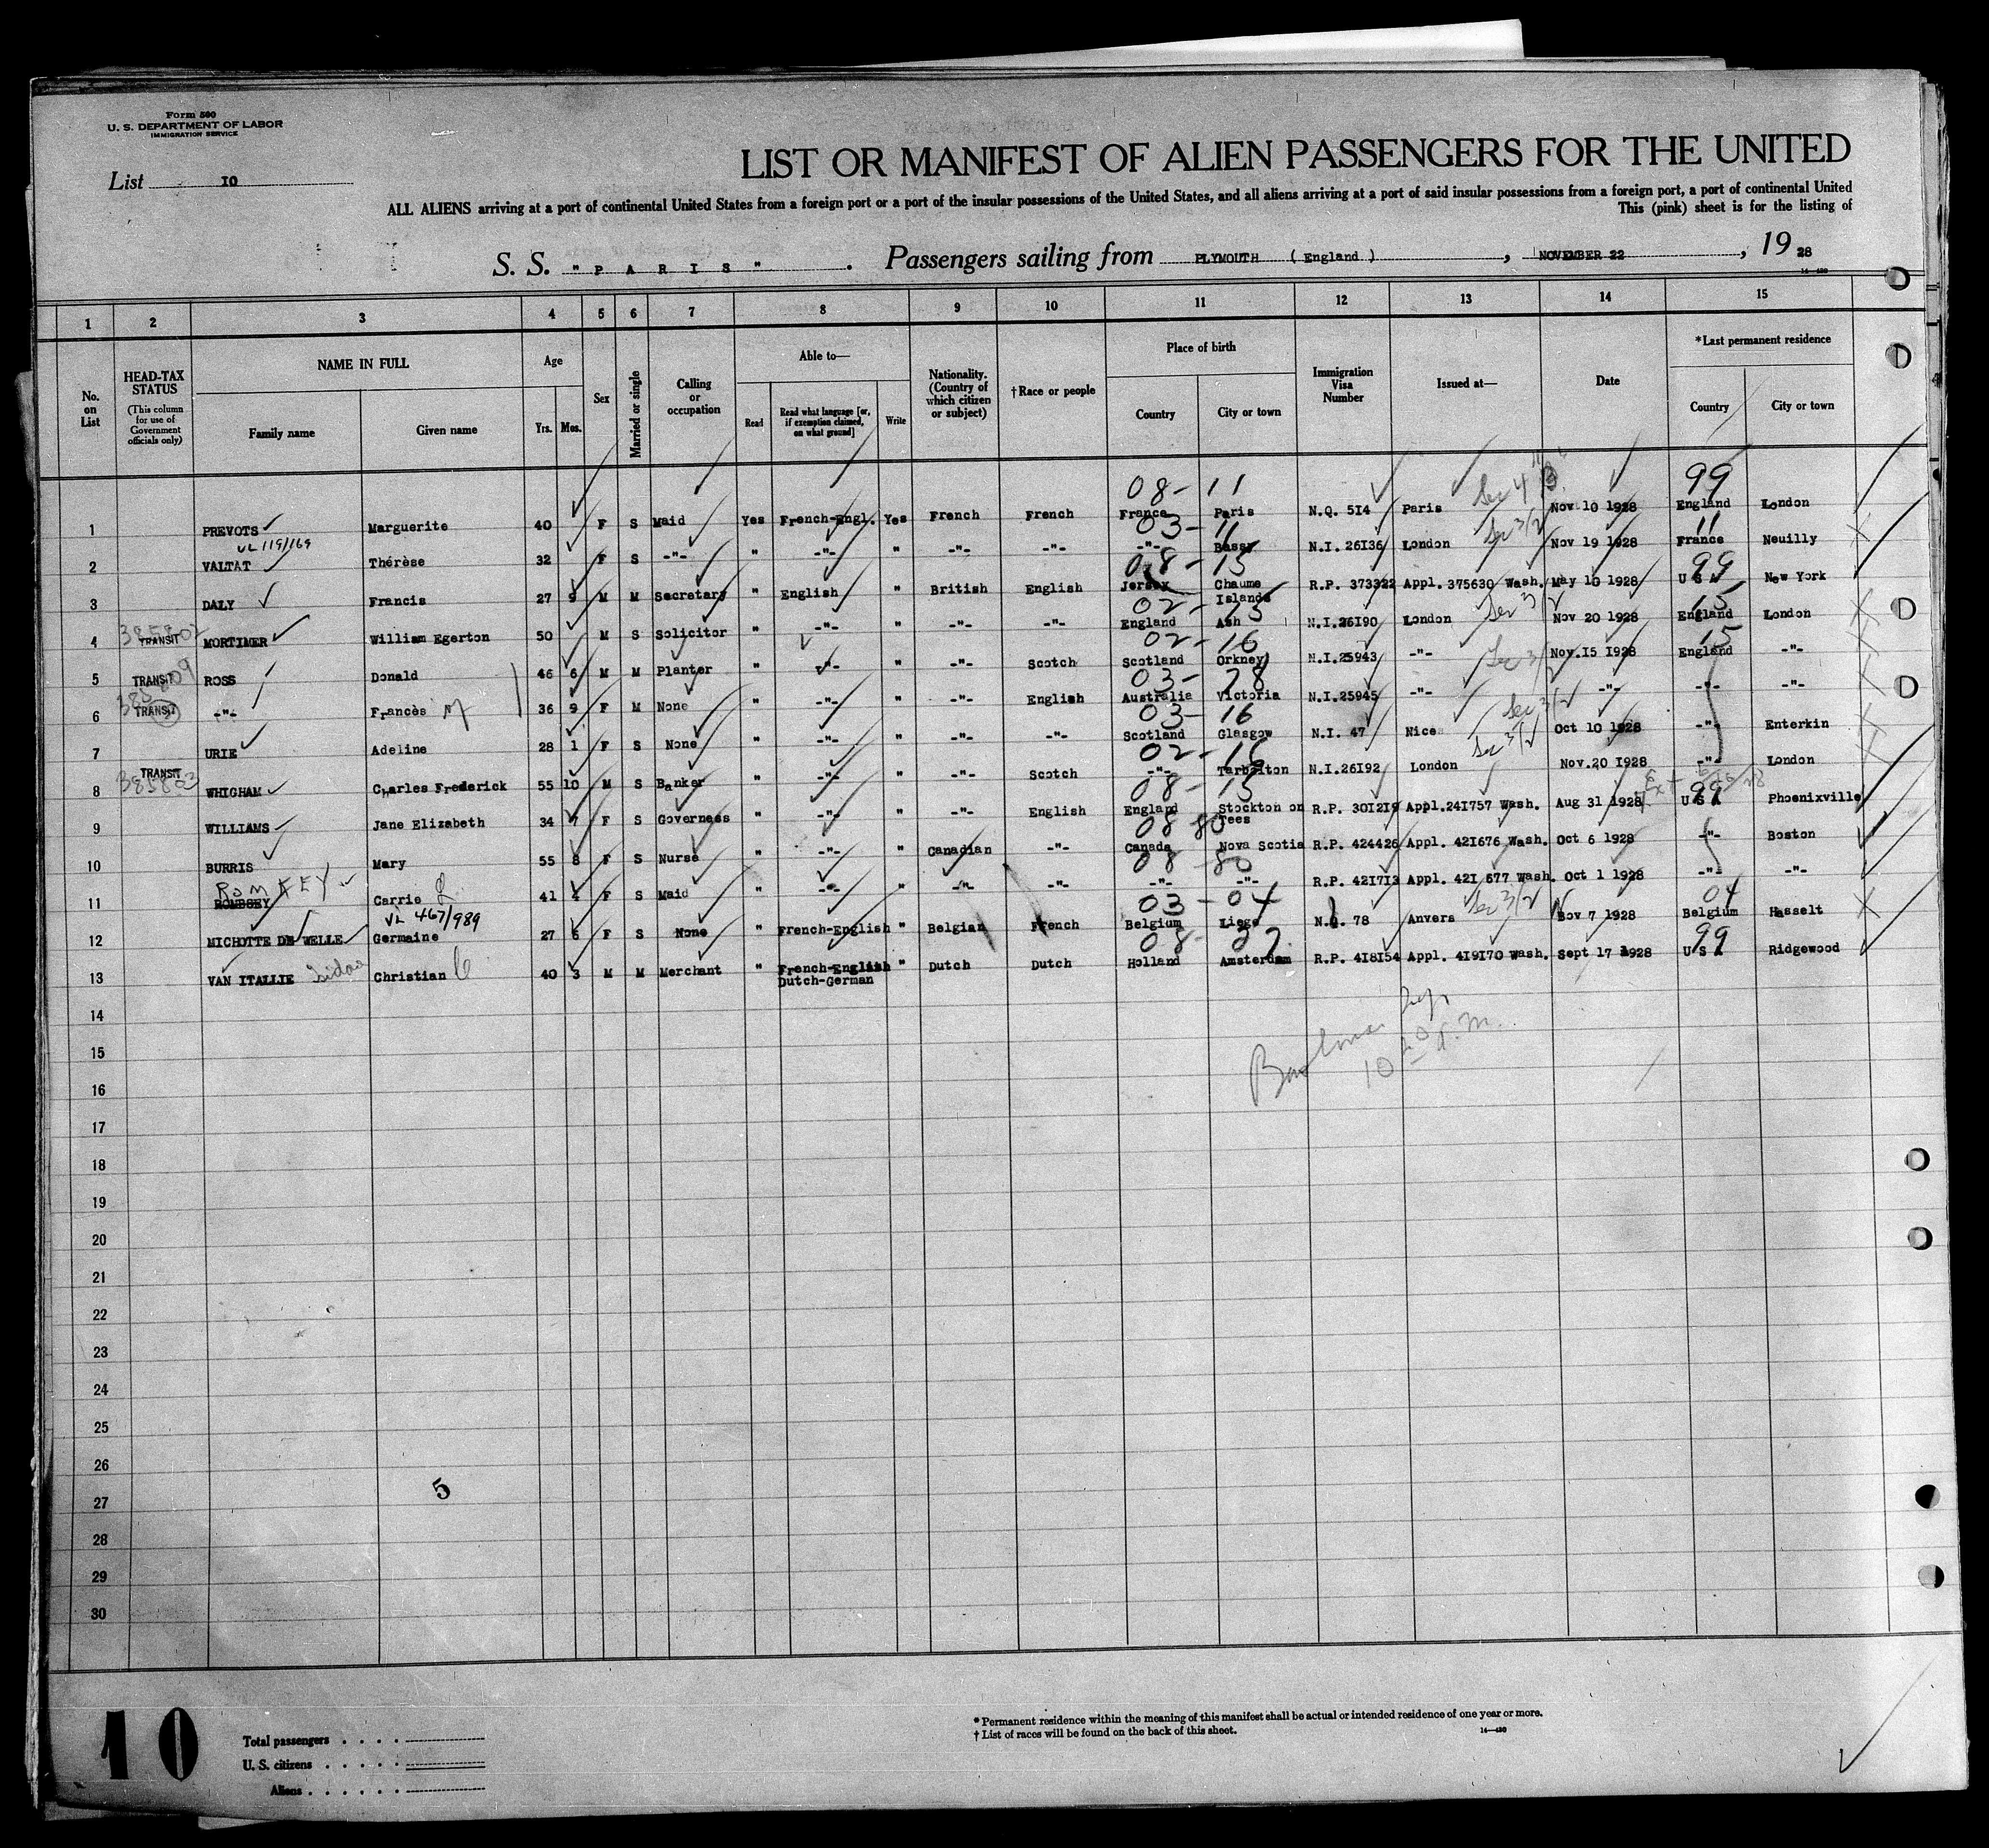 Form 500
U. S. DEPARTMENT OF LABOR
IMMIGRATION SERVICE
List 10
LIST OR MANIFEST OF ALIEN PASSENGERS FOR THE UNITED
ALL ALIENS arriving at a port of continental United States from a foreign port or a port of the insular possessions of the United States, and all aliens arriving at a port of said insular possessions from a foreign port, a port of continental United
This (pink) sheet is for the listing of
S. S. " P A R I S " . Passengers sailing from PLYMOUTH ( England ) , NOVEMBER 22 , 19 28
1 2 3 4 5 6 7 8 9 10 11 12 13 14 15
No. on List
HEAD-TAX STATUS (This column for use of Government officials only)
NAME IN FULL
Family name Given name
Age
Yrs. Mos.
Sex
Married or single
Calling or occupation
Able to—
Read Read what language [or, if exemption claimed, on what ground] Write
Nationality. (Country of which citizen or subject)
†Race or people
Place of birth
Country City or town
Immigration Visa Number
Issued at—
Date
*Last permanent residence
Country City or town
08- 11 Sec 4 99
1 PREVOTS Marguerite 40 F S Maid Yes French-Engl. Yes French French France Paris N.Q. 514 Paris Nov 10 1928 England London
VL 119/169 03- 11 Sec 3/2 11
2 VALTAT Thérèse 32 F S -"- " -"- " -"- -"- -"- Bassy N.I. 26136 London Nov 19 1928 France Neuilly
08- 15 99
3 DALY Francis 27 9 M M Secretary " English " British English Jersey Chaume Islands R.P. 373322 Appl. 375630 Wash. May 10 1928 U S A New York
385802 02- 15 Sec 3/2 15
4 TRANSIT MORTIMER William Egerton 50 M S Solicitor " -"- " -"- -"- England Ash N.I.26190 London Nov 20 1928 England London
02- 16 15
5 TRANSIT ROSS Donald 46 6 M M Planter " -"- " -"- Scotch Scotland Orkney N.I.25943 -"- Sec 3/2 Nov.15 1928 England -"-
385809 03- 78
6 TRANSIT -"- Francès M 36 9 F M None " -"- " -"- English Australia Victoria N.I.25945 -"- Sec 3/2 -"- -"- -"-
03- 16
7 URIE Adeline 28 1 F S None " -"- " -"- -"- Scotland Glasgow N.I. 47 Nice Sec 3/2 Oct 10 1928 -"- Enterkin
TRANSIT 02- 16
8 385803 WHIGHAM Charles Frederick 55 10 M S Banker " -"- " -"- Scotch -"- Tarbolton N.I.26192 London Nov.20 1928 -"- London
08- 15 99
9 WILLIAMS Jane Elizabeth 34 7 F S Governess " -"- " -"- English England Stockton on Tees R.P. 301219 Appl.241757 Wash. Aug 31 1928 U S A Phoenixville
08 80
10 BURRIS Mary 55 8 F S Nurse " -"- " Canadian -"- Canada Nova Scotia R.P. 424426 Appl. 421676 Wash. Oct 6 1928 -"- Boston
ROMKEY 08 -80
11 ROMBSEY Carrie 41 4 F S Maid " -"- " -"- -"- -"- -"- R.P. 421713 Appl. 421 677 Wash. Oct 1 1928 -"- -"-
VL 467/989 03 - 04 Sec 3/2 04
12 MICHOTTE DE WELLE Germaine 27 6 F S None " French-English " Belgian French Belgium Liege 78 Anvers Nov 7 1928 Belgium Hasselt
08- 37 99
13 VAN ITALLIE Christian 40 3 M M Merchant " French-English Dutch-German " Dutch Dutch Holland Amsterdam R.P. 418154 Appl. 419170 Wash. Sept 17 1928 U S A Ridgewood
14
15
16
17
18
19
20
21
22
23
24
25
26
27
28
29
30
5
10
Total passengers
U. S. citizens
Aliens
* Permanent residence within the meaning of this manifest shall be actual or intended residence of one year or more.
† List of races will be found on the back of this sheet.
14—430